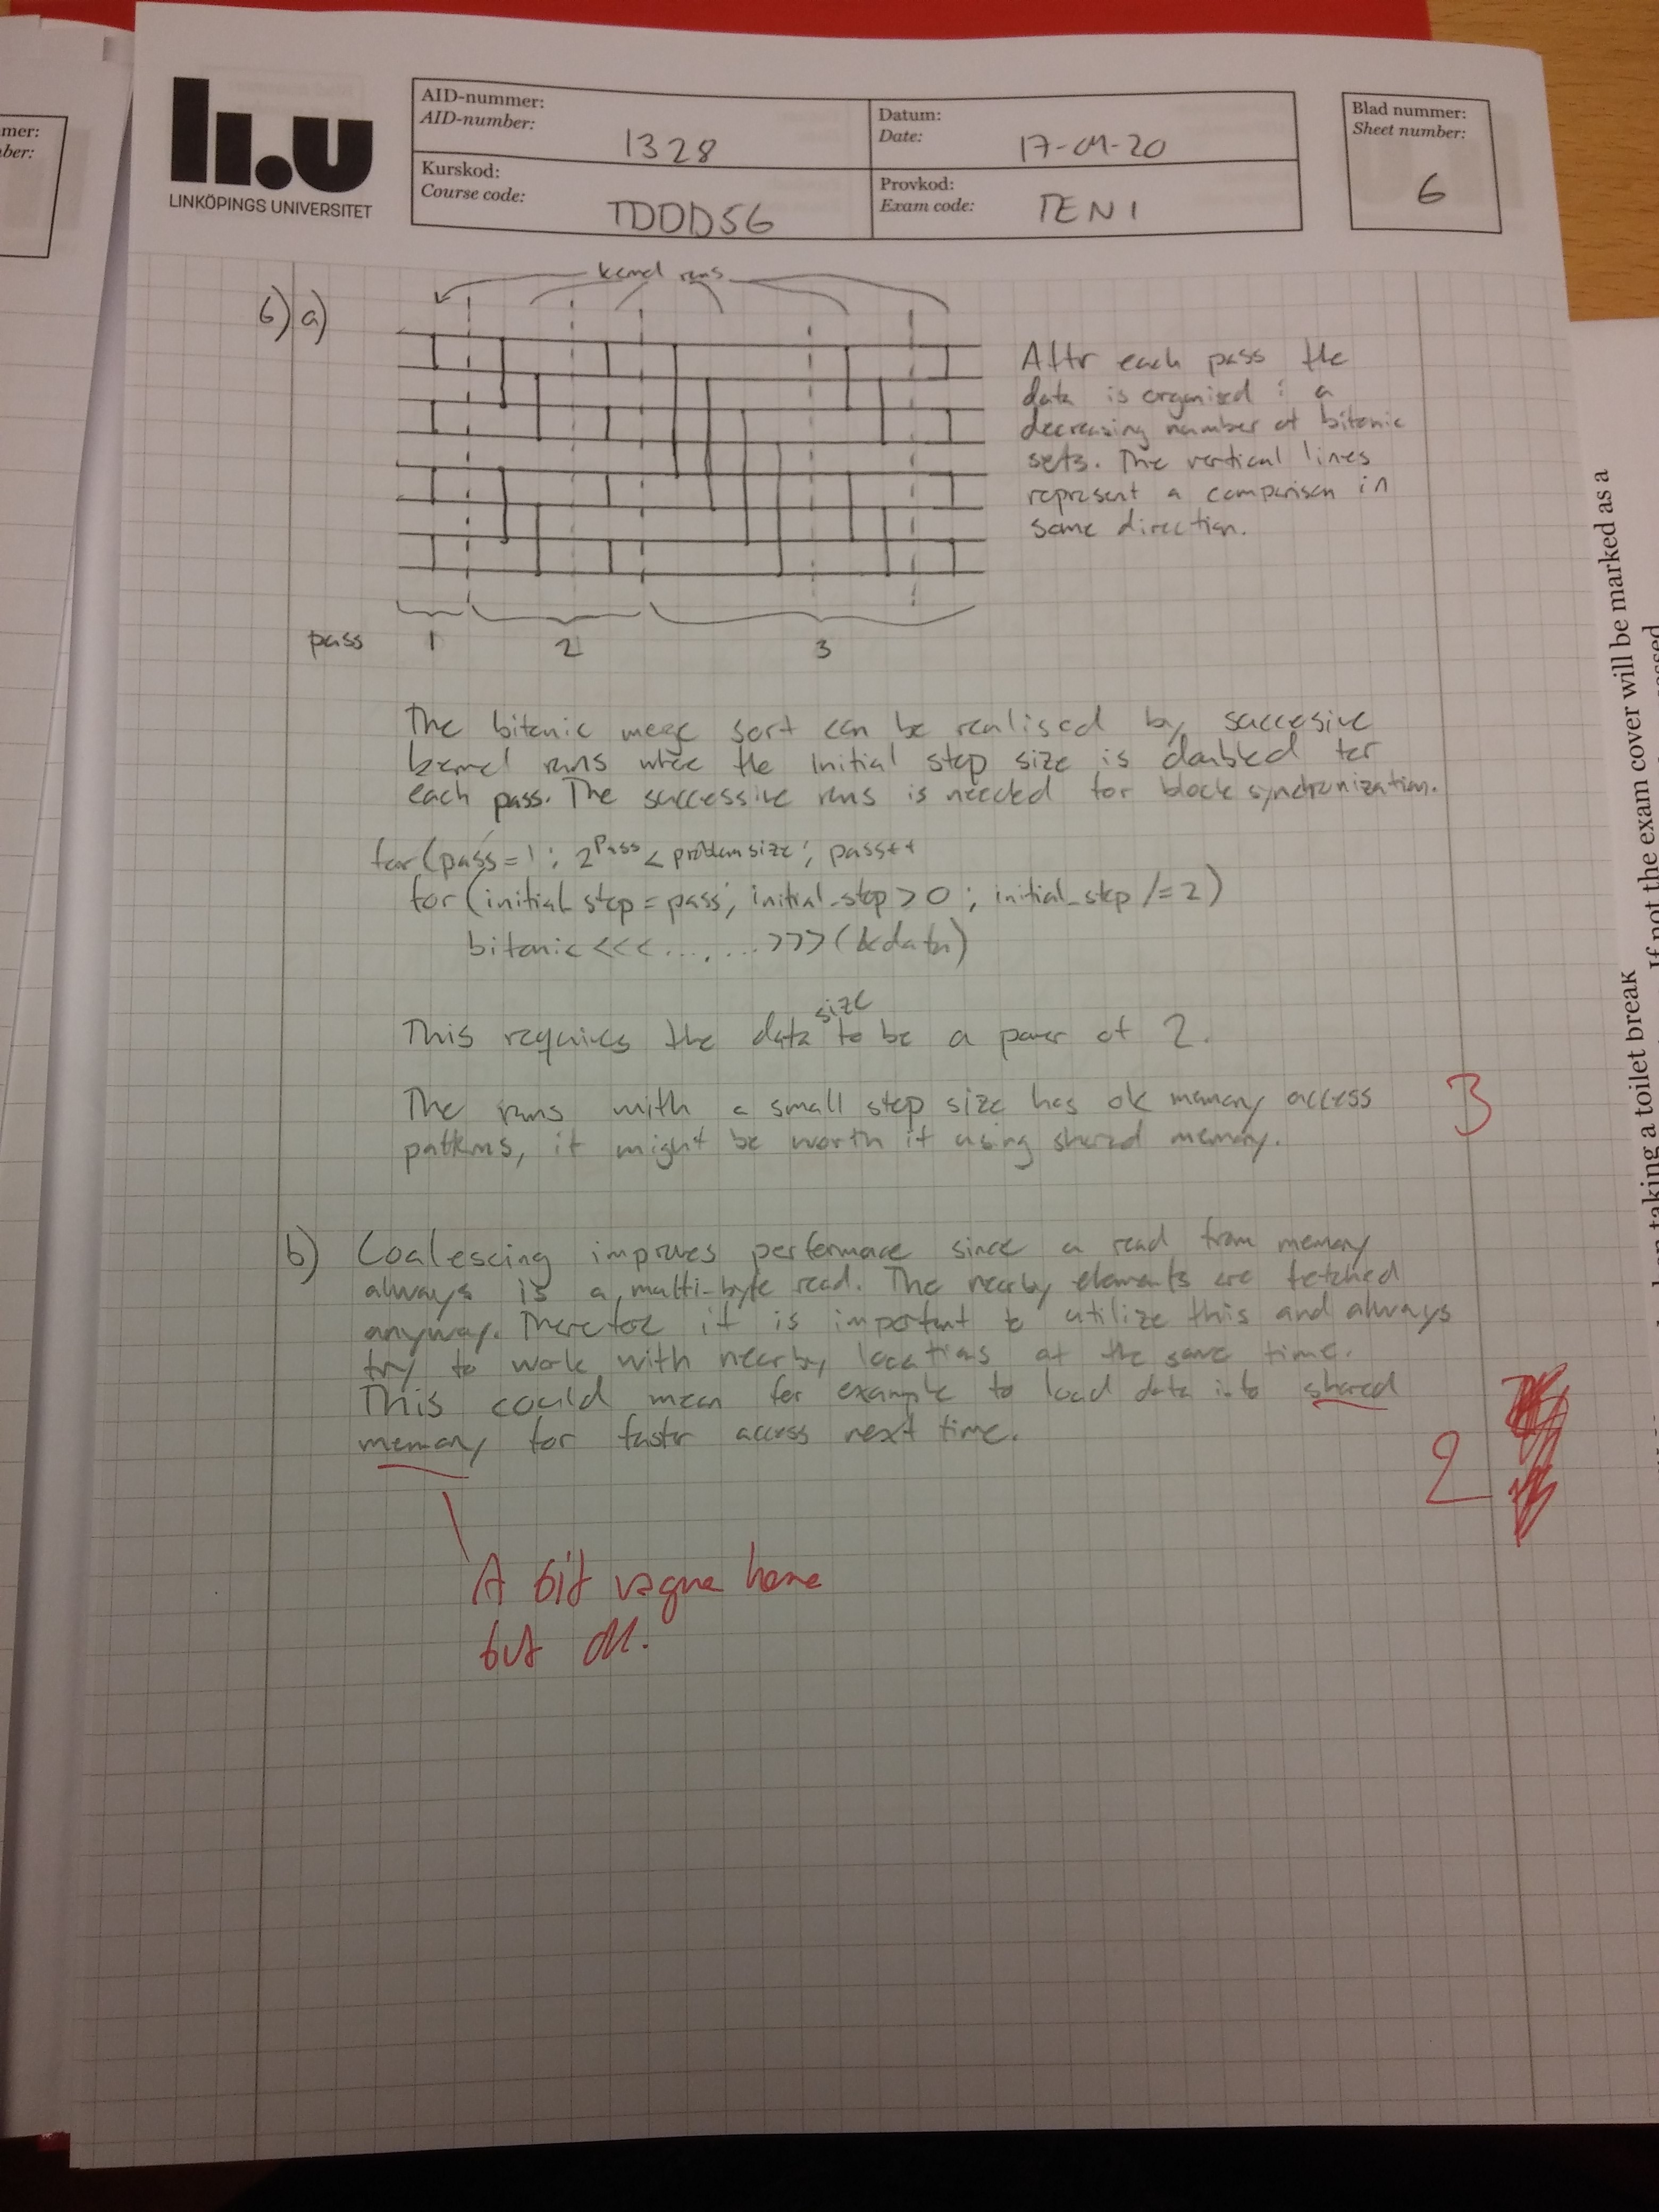 mer:
ber:
li.u
LINKÖPINGS UNIVERSITET
AID-nummer:
AID-number:
1328
Datum:
Date:
17-04-20
Kurskod:
Course code:
TDDD56
Provkod:
Exam code:
TEN1
Blad nummer:
Sheet number:
6
6) a)
kernel runs
After each pass the
data is organized : a
decreasing number of bitonic
sets. The vertical lines
represent a comparison in
same direction.
pass 1 2 3
The bitonic merge sort can be realised by succesive
kernel runs where the initial step size is doubled for
each pass. The successive runs is needed for block synchronization.
for(pass=1; 2^pass < problem size; pass++
for(initial_step = pass; initial_step > 0; initial_step /= 2)
bitonic <<< ....... >>> (&data)
This requires the data size to be a power of 2.
The runs with a small step size has ok memory access
patterns, it might be worth it using shared memory.
3
b) Coalescing improves performace since a read from memory
always is a multi-byte read. The nearby elements are fetched
anyway. Therefor it is important to utilize this and always
try to work with nearby locations at the same time.
This could mean for example to load data into shared
memory for faster access next time.
2
A bit vague here
but OK.
on taking a toilet break
If not the exam cover will be marked as a